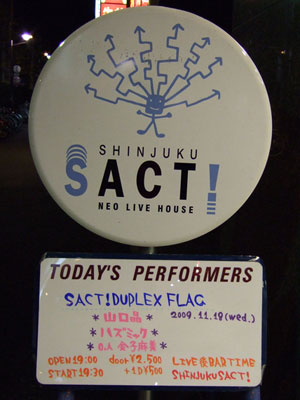 SHINJUKU
SACT!
NEO LIVE HOUSE
TODAY'S PERFORMERS
SACT!DUPLEX FLAG
* 山口晶 * 2009.11.18(wed.)
* ハズミック *
O.A 金子麻美 *
OPEN 19:00 door ¥2,500 LIVE@BARTIME
START 19:30 +1D¥500 SHINJUKUSACT!